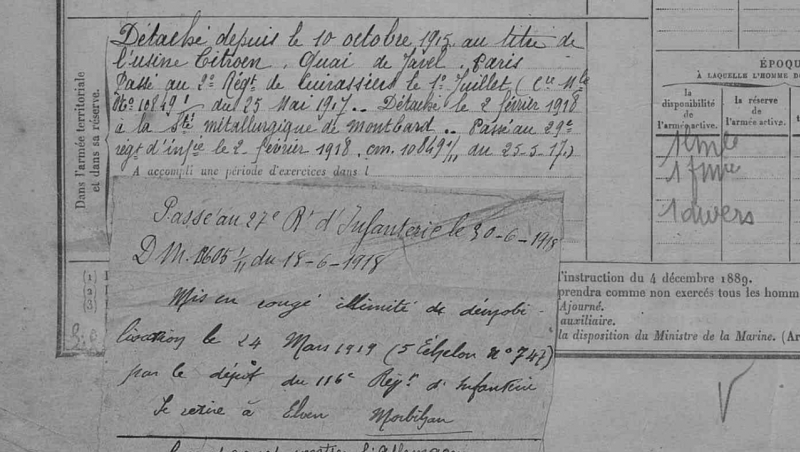 Détaché depuis le 10 octobre 1915 au titre de
l'usine Citroën, Quai de Javel, Paris
Passé au 2e Régt de Cuirassiers le 1er Juillet (Cre Mle
No 10849 du 25 Mai 1917.. Détaché le 2 février 1918
à la Sté métallurgique de Montbard.. Passé au 29e
régt d'infie le 2 février 1918. cm. 10249 1/11 du 25-5-17.)
A accompli une période d'exercices dans l
Dans l'armée territoriale
et dans sa réserve.
Passé au 27e Rt d'Infanterie le 30-6-1918
D.M. 1/11 du 18-6-1918
Mis en congé illimité de démobi-
lisation le 24 Mars 1919 (5 Échelon no 747)
par le dépôt du 116e Régt d'Infanterie
Se retire à Elven Morbihan
ÉPOQU
À LAQUELLE L'HOMME D
la
disponibilité
de
l'armée active.
la réserve
de
l'armée active.
1
1
1 divers
(1)
(2)
(3)
l'instruction du 4 décembre 1889.
prendra comme non exercés tous les homm
Ajourné.
auxiliaire.
la disposition du Ministre de la Marine. (Ar